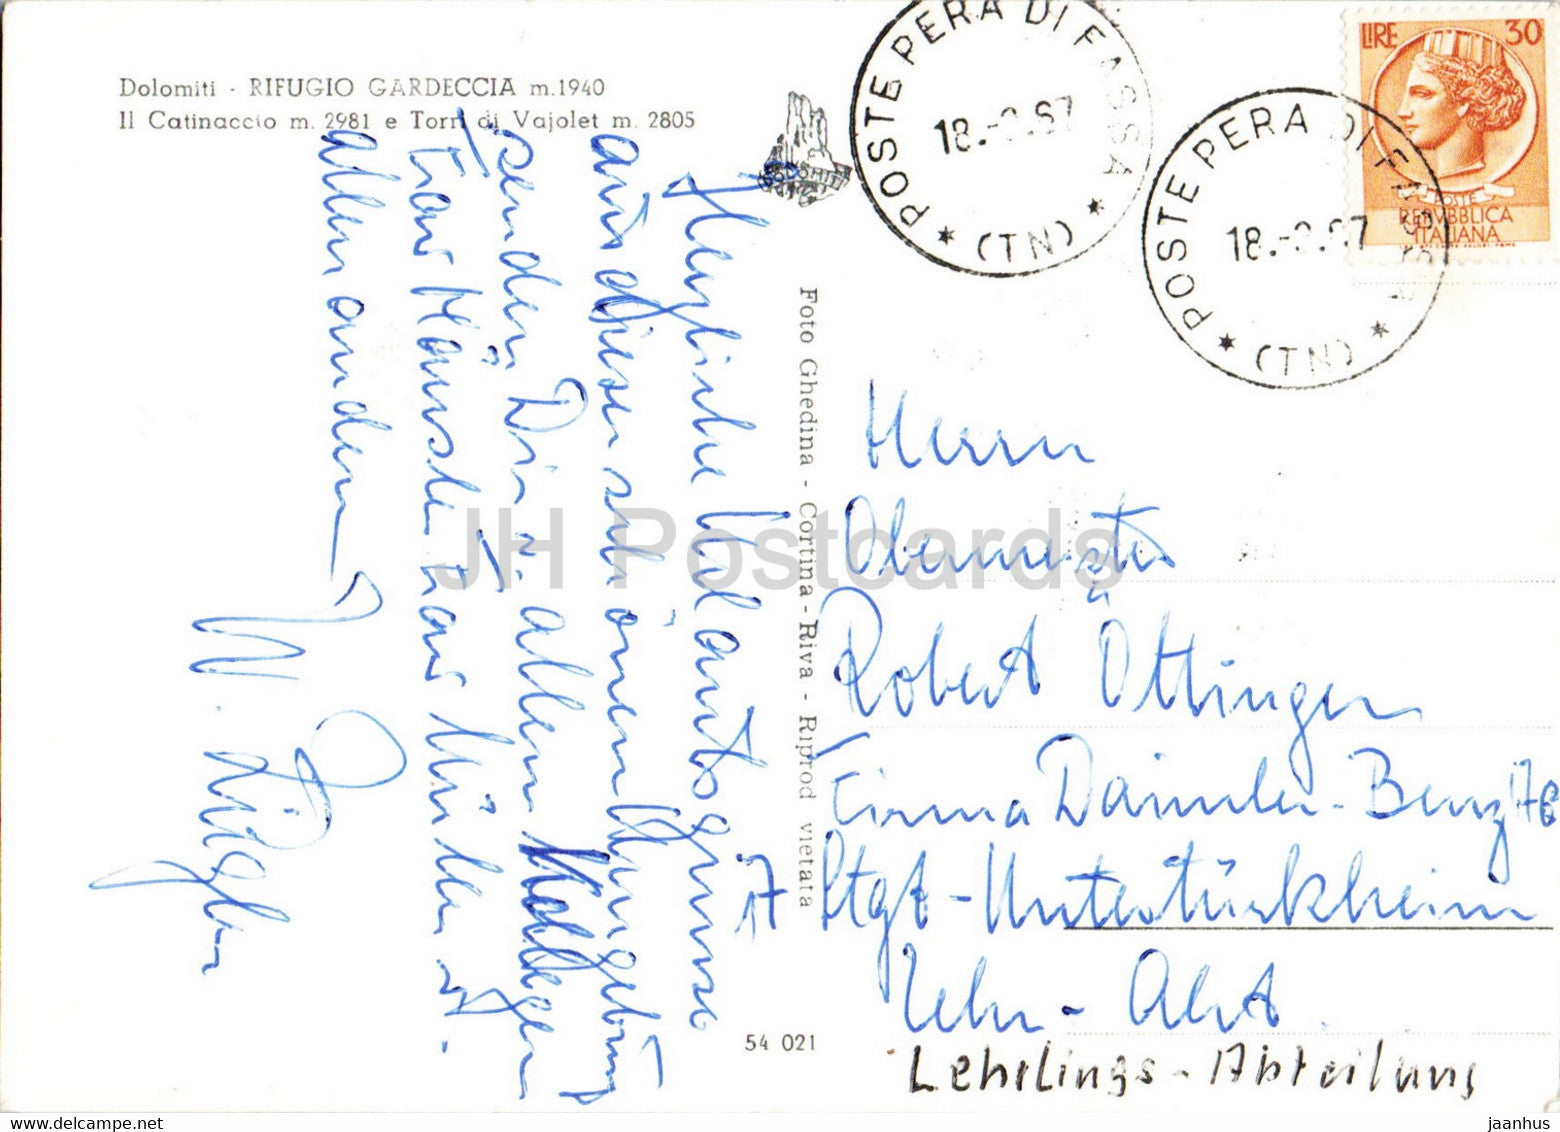 Dolomiti - RIFUGIO GARDECCIA m.1940
Il Catinaccio m. 2981 e Torri di Vajolet m. 2805
DOLOMITI
POSTE PERA DI FASSA
18. .67
(TN)
POSTE PERA DI FASSA
18. . 67
(TN)
LIRE 30
POSTE
REPVBBLICA
ITALIANA
Herzliche Urlaubsgrüsse
aus dieser schönen Umgebung
senden Dir u. allen Kollegen
Frau Künstle, Frau Müller u.
allen andern
Foto Ghedina - Cortina - Riva - Riprod vietata
Herrn
Obermeister
Robert Ottinger
Firma Daimler-Benz AG
7 Stgt-Untertürkheim
Lehr-Abt.
Lehrlings-Abteilung
54 021
JH Postcards
www.delcampe.net
jaanhus